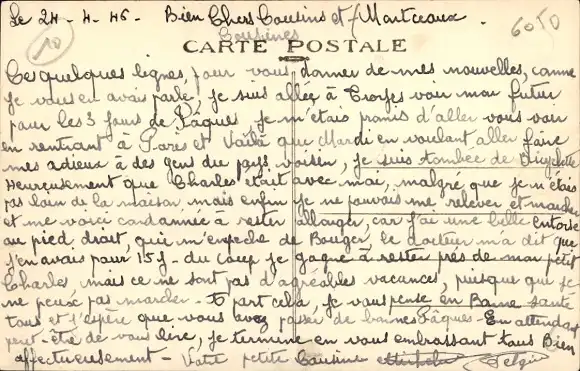 Le 24-4-46 - Bien Chers Cousins et Martceaux.
Cousines
6050
10
CARTE POSTALE
Ces quelques lignes, pour vous donner de mes nouvelles, comme
je vous en avais parlé, je suis allée à Troyes voir mon futur
pour les 3 jours de Pâques. je m'étais promis d'aller vous voir
en rentrant à Paris et Voilà que Mardi en voulant aller faire
mes adieux à des gens du pays voisin, je suis tombée de Bicyclette
Heureusement que Charles était avec moi, malgré que je n'étais
pas loin de la maison mais enfin je ne pouvais me relever et marcher
et me voici condamnée à rester allonger, car j'ai une belle entorse
au pied droit, qui m'empêche de Bouger, le docteur m'a dit que
j'en avais pour 15 j - du coup je gagne à rester près de mon petit
Charles, mais ce ne sont pas d'agréables vacances, puisque je
ne peux pas marcher - à part cela, je vous pense en Bonne santé
tous et j'espère que vous avez passer de bonnes Pâques - En attendant
peut-être de vous lire, je termine en vous embrassant tous Bien
affectueusement - Votre petite Cousine